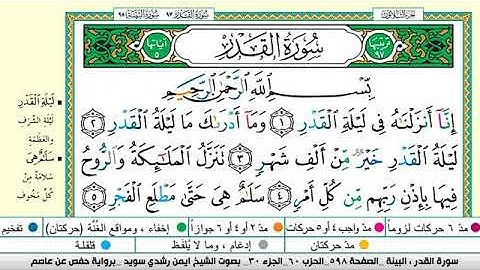 سُورَةُ القَدْرِ ٩٧
سُورَةُ البَيِّنَةِ ٩٨
تَرْتِيبُهَا ٩٧
سُورَةُ الْقَدْرِ
آيَاتُهَا ٥
بِسْمِ اللَّهِ الرَّحْمَٰنِ الرَّحِيمِ
إِنَّآ أَنزَلْنَٰهُ فِى لَيْلَةِ الْقَدْرِ ١ وَمَآ أَدْرَىٰكَ مَا لَيْلَةُ الْقَدْرِ ٢
لَيْلَةُ الْقَدْرِ خَيْرٌ مِّنْ أَلْفِ شَهْرٍ ٣ تَنَزَّلُ الْمَلَٰٓئِكَةُ وَالرُّوحُ
فِيهَا بِإِذْنِ رَبِّهِم مِّن كُلِّ أَمْرٍ ٤ سَلَٰمٌ هِىَ حَتَّىٰ مَطْلَعِ الْفَجْرِ ٥
لَيْلَةِ الْقَدْرِ
لَيْلَةُ الشَّرَفِ
والعَظَمَةِ
سَلَٰمٌ هِىَ
سَلَامَةٌ مِنْ
كُلِّ مَخُوفٍ
مدّ ٦ حركات لزوماً
مدّ واجب ٤ أو ٥ حركات
مدّ ٢ أو ٤ أو ٦ جوازاً
إخفاء ، ومواقع الغُنَّة (حركتان)
تفخيم
مدّ حركتان
إدغام ، وما لا يُلفَظ
قلقلة
سورة القدر ، البينة _الصفحة ٥٩٨_الحزب ٦٠_الجزء ٣٠_ بصوت الشيخ ايمن رشدي سويد _برواية حفص عن عاصم